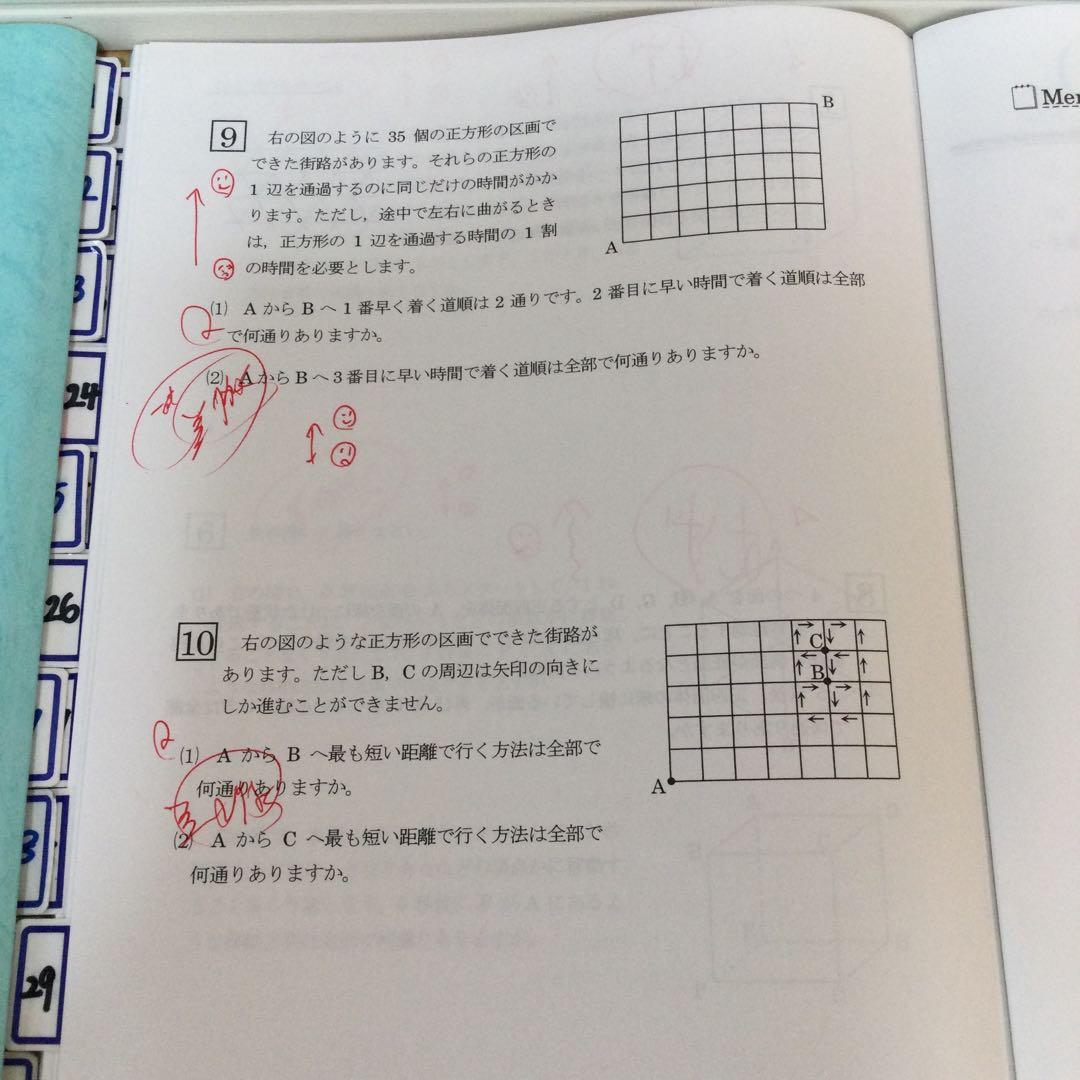 B
9 右の図のように 35 個の正方形の区画で
できた街路があります。それらの正方形の
1 辺を通過するのに同じだけの時間がかか
ります。ただし，途中で左右に曲がるとき
は，正方形の 1 辺を通過する時間の 1 割
の時間を必要とします。
A
(1) A から B へ 1 番早く着く道順は 2 通りです。2 番目に早い時間で着く道順は全部
で何通りありますか。
(2) A から B へ 3 番目に早い時間で着く道順は全部で何通りありますか。
10 右の図のような正方形の区画でできた街路が
あります。ただし B，C の周辺は矢印の向きに
しか進むことができません。
C
B
A
(1) A から B へ最も短い距離で行く方法は全部で
何通りありますか。
(2) A から C へ最も短い距離で行く方法は全部で
何通りありますか。
2
3
24
5
26
3
29